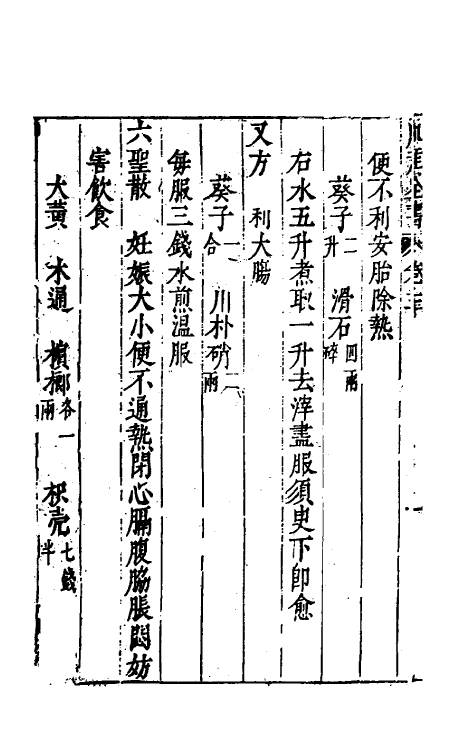 便不利安胎除熱
葵子二升 滑石四兩碎
右水五升煮取一升去滓盡服須臾下即愈
又方 利大腸
葵子一合 川朴硝二兩
每服三錢水煎温服
六聖散 妊娠大小便不通熱閉心膈腹脇脹悶妨
害飲食
大黃 木通 檳榔各一兩 枳壳七錢半